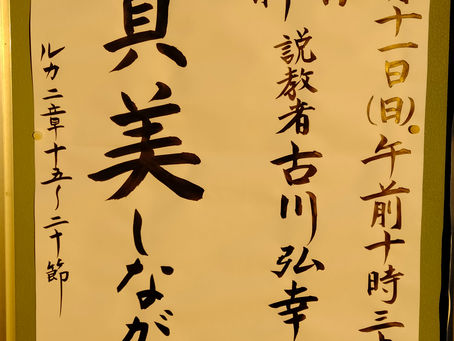 十一日(日)午前十時三
説教者 古川弘幸
美しなが
ルカ二章十五~二十節